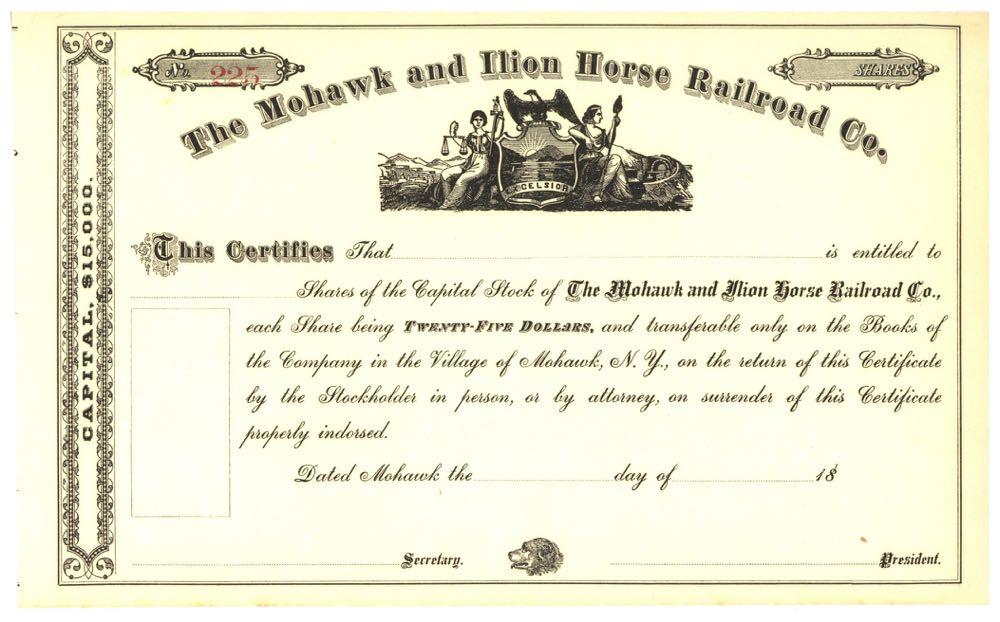 No. 225
SHARES
The Mohawk and Ilion Horse Railroad Co.
EXCELSIOR
CAPITAL, $15,000.
This Certifies That is entitled to
Shares of the Capital Stock of The Mohawk and Ilion Horse Railroad Co.,
each Share being TWENTY-FIVE DOLLARS, and transferable only on the Books of
the Company in the Village of Mohawk, N. Y., on the return of this Certificate
by the Stockholder in person, or by attorney, on surrender of this Certificate
properly indorsed.
Dated Mohawk the day of 18
Secretary.
President.